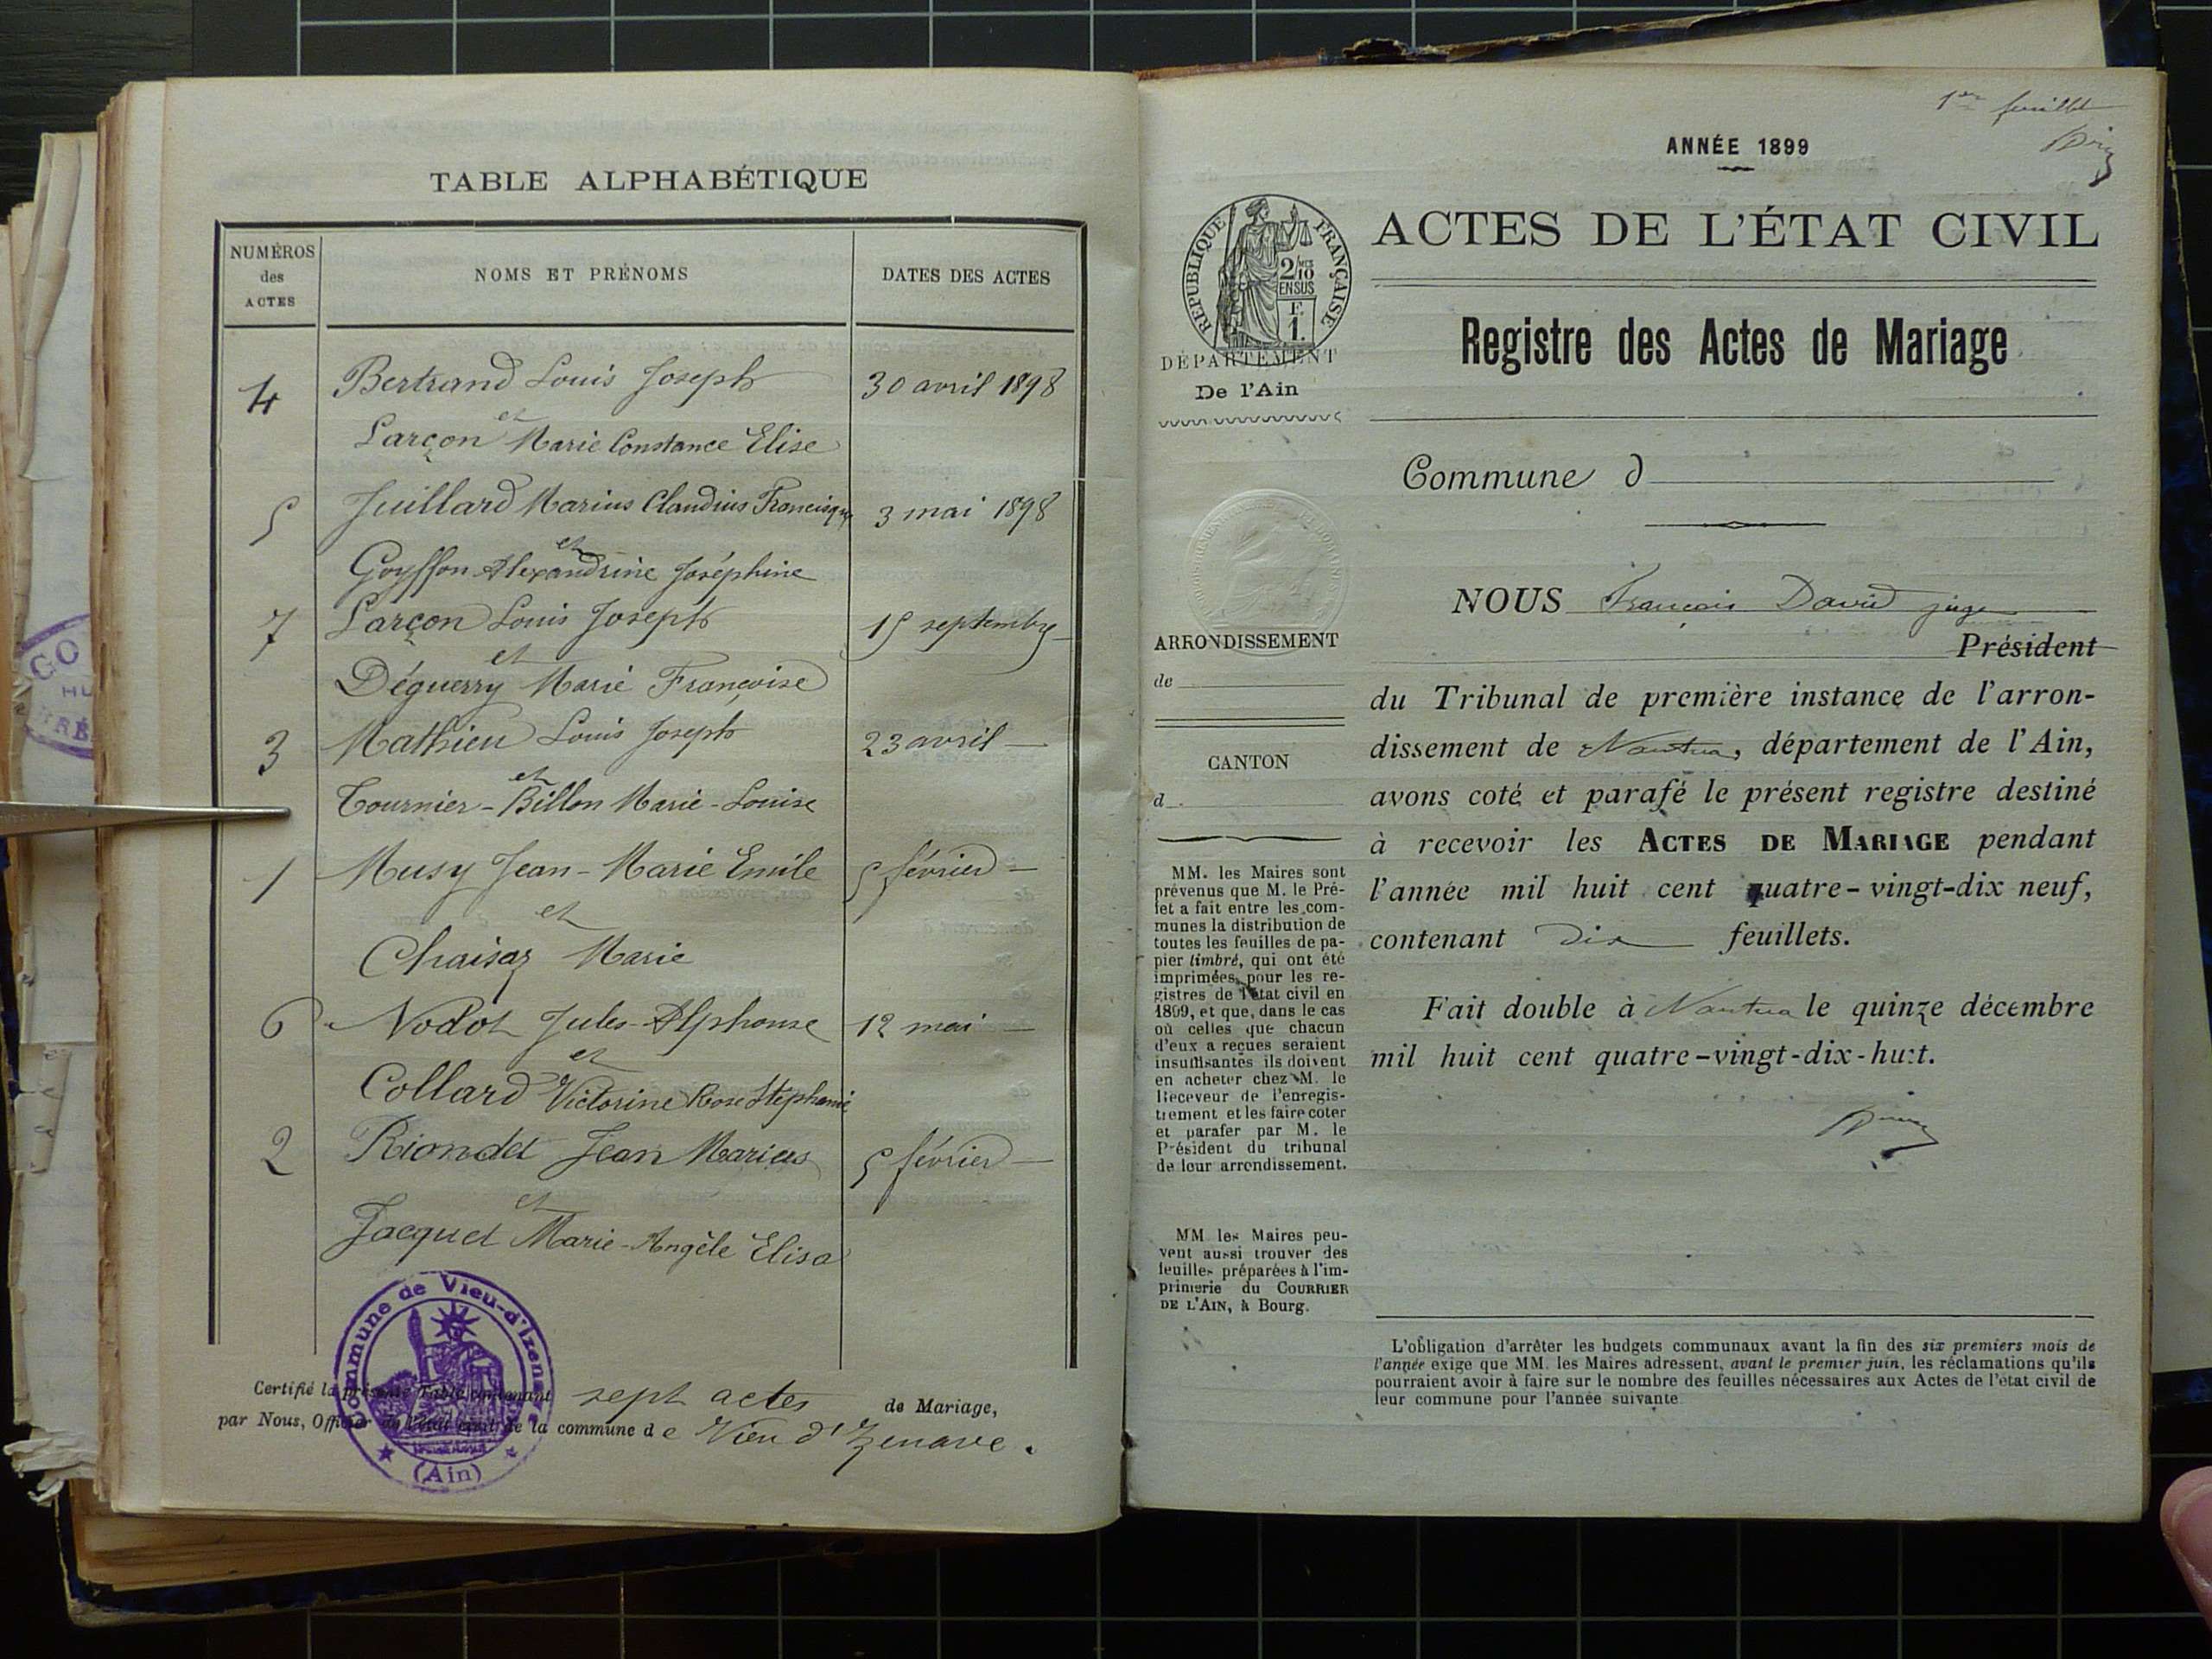 TABLE ALPHABÉTIQUE
NUMÉROS
des
ACTES
NOMS ET PRÉNOMS
DATES DES ACTES
4 Bertrand Louis Joseph 30 avril 1898
et
Larçon Marie Constance Elise
5 Juillard Marius Claudius Francisque 3 mai 1898
et
Goyffon Alexandrine Joséphine
7 Larçon Louis Joseph 15 septembre
et
Déguerry Marie Françoise
3 Mathieu Louis Joseph 23 avril —
et
Tournier-Billon Marie-Louise
1 Musy Jean-Marie Emile 5 février —
et
Chaisaz Marie
6 Nodot Jules-Alphonse 12 mai —
et
Collard Victorine Rose Stéphanie
2 Riondet Jean Marius 5 février —
et
Jacquet Marie-Angèle Elisa
Commune de Vieu-d'Izenave
(Ain)
Certifié la présente Table contenant sept actes de Mariage,
par Nous, Officier de l'état civil de la commune de Vieu d'Izenave.
1er feuillet
ANNÉE 1899
RÉPUBLIQUE FRANÇAISE
2/10 MES
EN SUS
F.
1.
ACTES DE L'ÉTAT CIVIL
Registre des Actes de Mariage
DÉPARTEMENT
De l'Ain
Commune d
ARRONDISSEMENT
de
CANTON
d
NOUS François David juge
Président
du Tribunal de première instance de l'arron-
dissement de Nantua, département de l'Ain,
avons coté et parafé le présent registre destiné
à recevoir les ACTES DE MARIAGE pendant
l'année mil huit cent quatre-vingt-dix neuf,
contenant Dix feuillets.
Fait double à Nantua le quinze décembre
mil huit cent quatre-vingt-dix-huit.
MM. les Maires sont
prévenus que M. le Pré-
fet a fait entre les com-
munes la distribution de
toutes les feuilles de pa-
pier timbré, qui ont été
imprimées pour les re-
gistres de l'état civil en
1899, et que, dans le cas
où celles que chacun
d'eux a reçues seraient
insuffisantes ils doivent
en acheter chez M. le
Receveur de l'enregis-
trement et les faire coter
et parafer par M. le
Président du tribunal
de leur arrondissement.
MM les Maires peu-
vent aussi trouver des
feuilles préparées à l'im-
primerie du COURRIER
DE L'AIN, à Bourg.
L'obligation d'arrêter les budgets communaux avant la fin des six premiers mois de
l'année exige que MM. les Maires adressent, avant le premier juin, les réclamations qu'ils
pourraient avoir à faire sur le nombre des feuilles nécessaires aux Actes de l'état civil de
leur commune pour l'année suivante